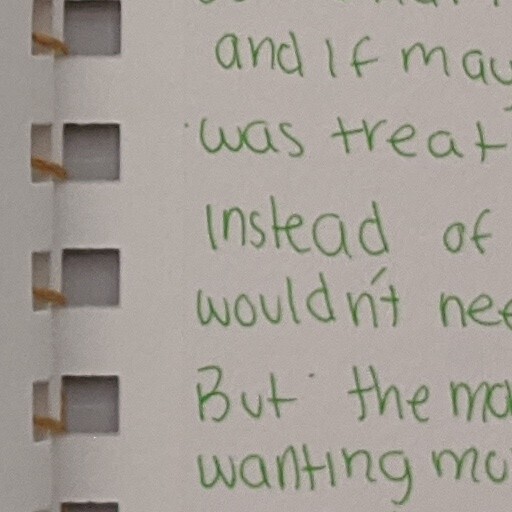 and if may
was treat
Instead of
wouldn't nee
But the mo
wanting mo